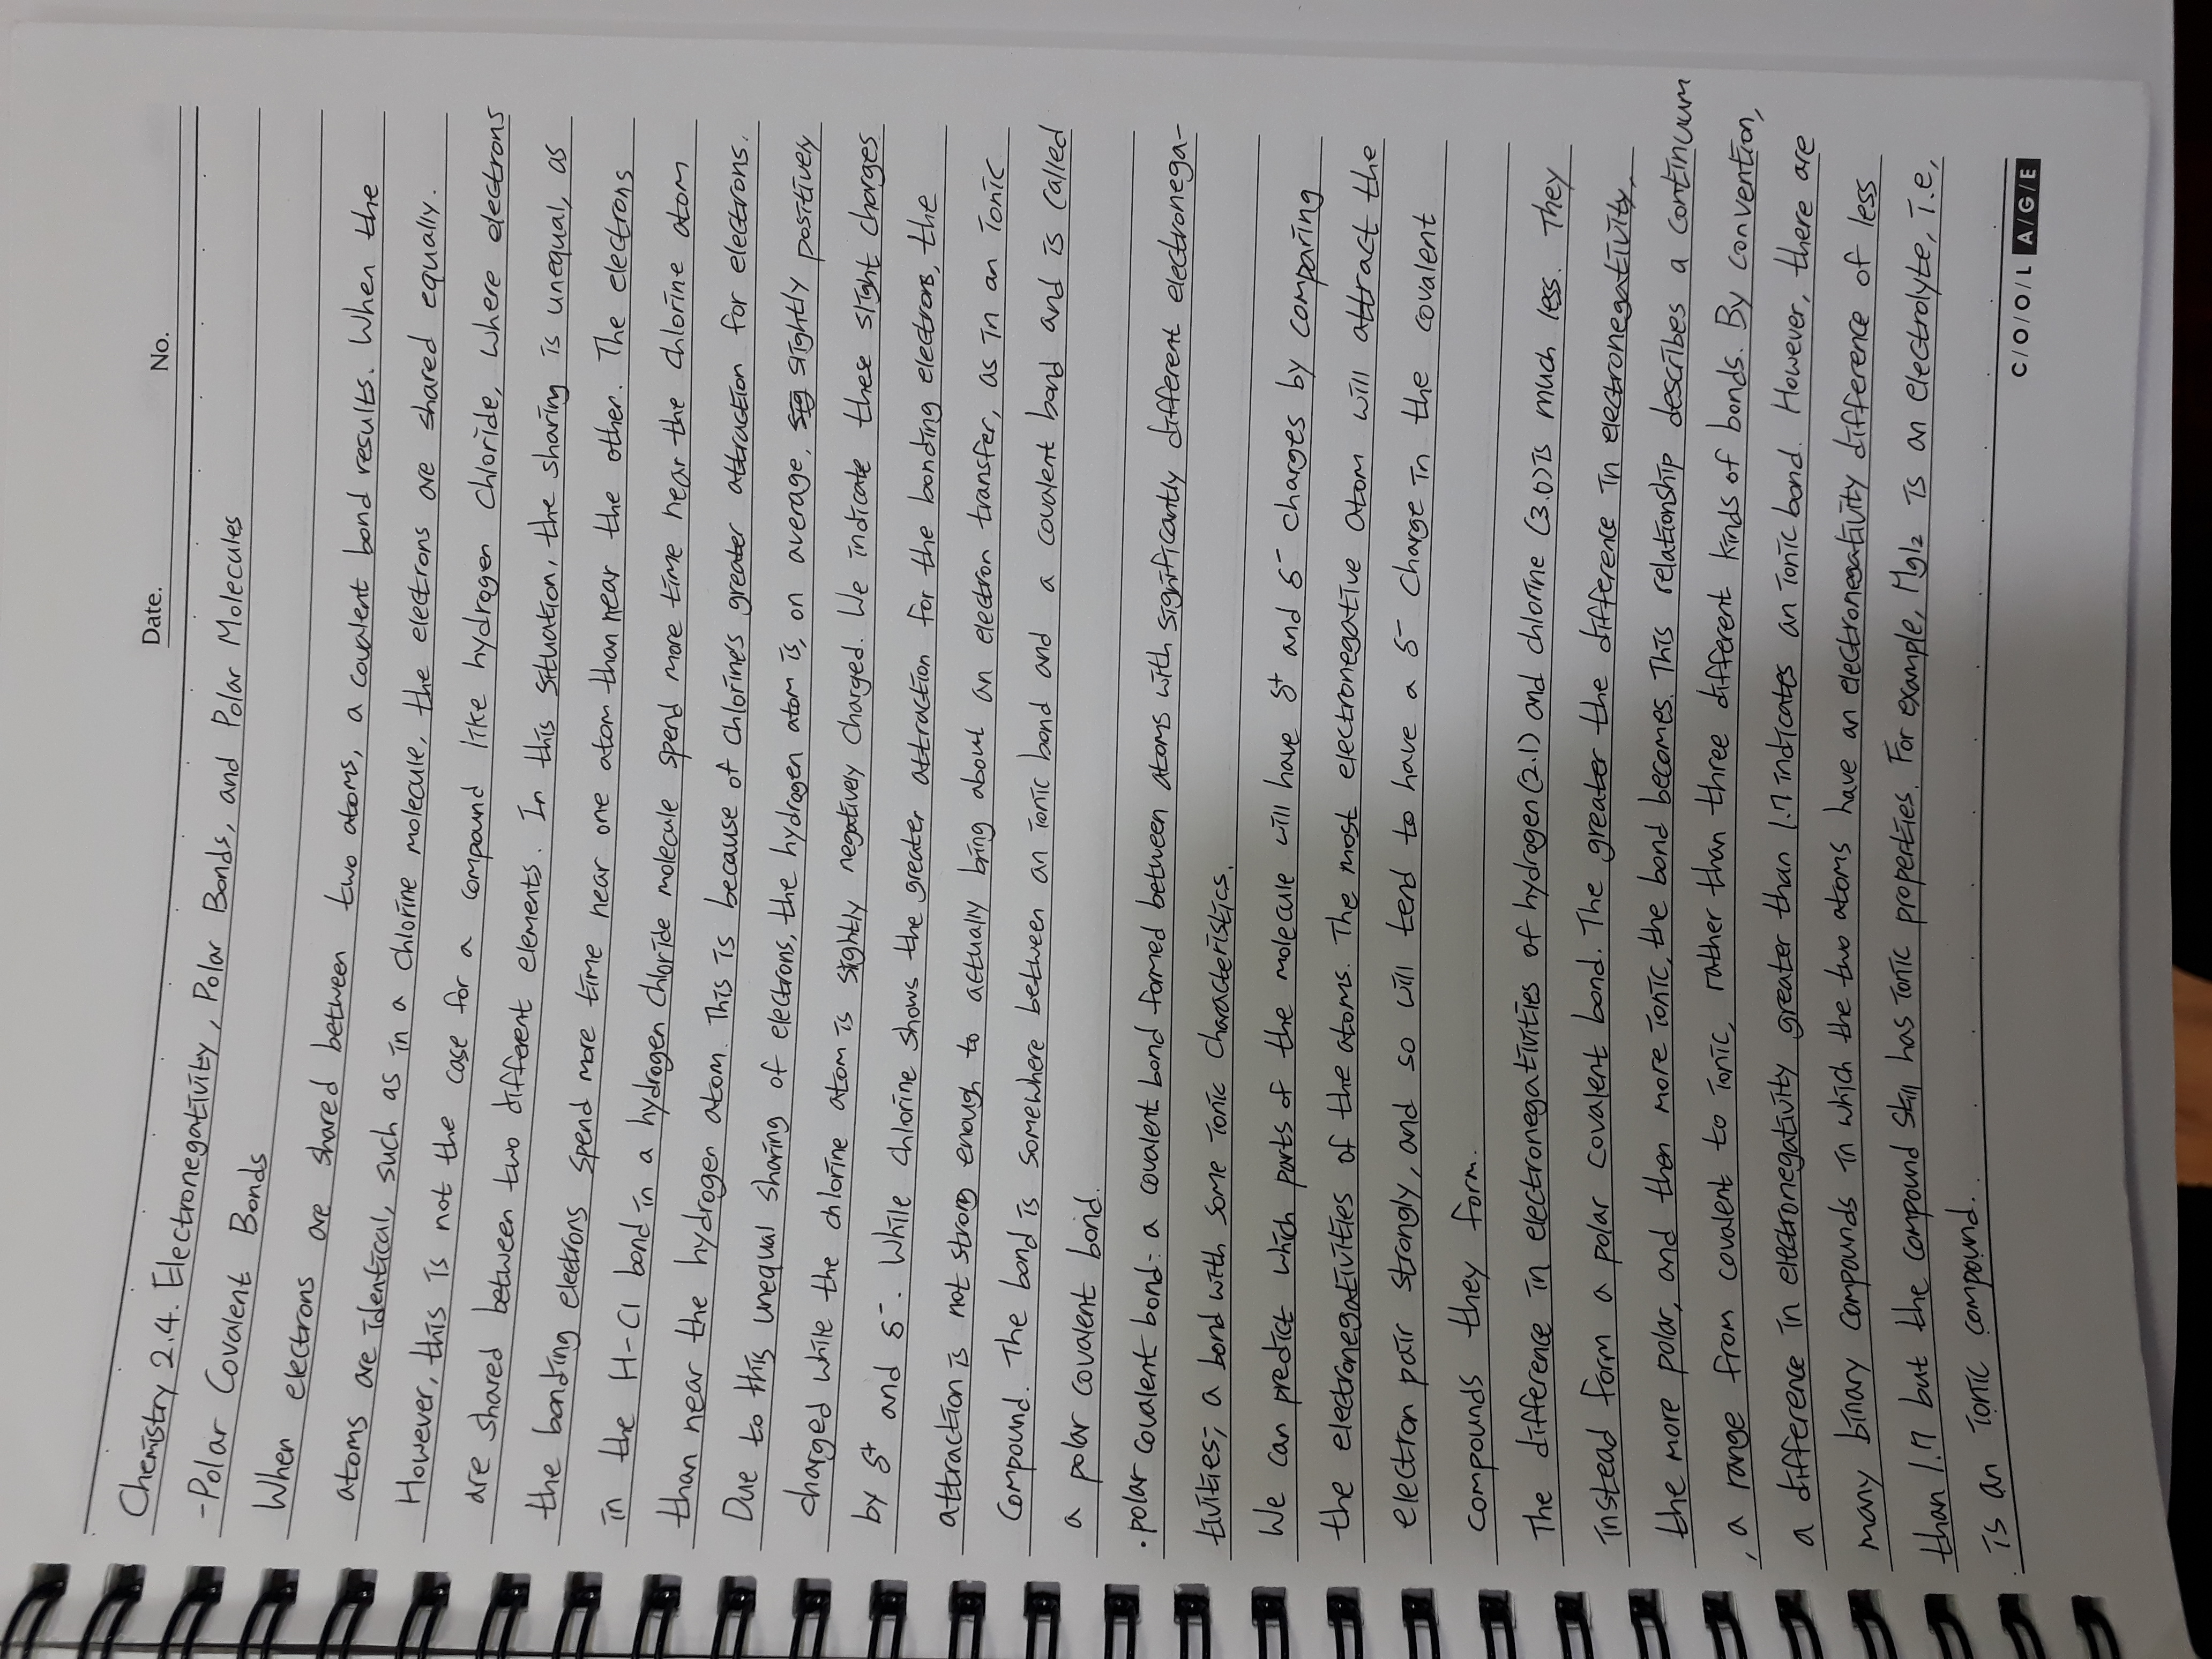 Date. No.
Chemistry 2.4. Electronegativity, Polar Bonds, and Polar Molecules
-Polar Covalent Bonds
When electrons are shared between two atoms, a covalent bond results. When the
atoms are identical, such as in a chlorine molecule, the electrons are shared equally.
However, this is not the case for a compound like hydrogen chloride, where electrons
are shared between two different elements. In this situation, the sharing is unequal, as
the bonding electrons spend more time near one atom than near the other. The electrons
in the H-Cl bond in a hydrogen chloride molecule spend more time near the chlorine atom
than near the hydrogen atom. This is because of chlorines greater attraction for electrons.
Due to this unequal sharing of electrons, the hydrogen atom is, on average, slightly positively
charged while the chlorine atom is slightly negatively charged. We indicate these slight charges
by δ+ and δ-. While chlorine shows the greater attraction for the bonding electrons, the
attraction is not strong enough to actually bring about an electron transfer, as in an ionic
compound. The bond is somewhere between an ionic bond and a covalent bond and is called
a polar covalent bond.
·polar covalent bond: a covalent bond formed between atoms with significantly different electronega-
tivities; a bond with some ionic characteristics.
We can predict which parts of the molecule will have δ+ and δ- charges by comparing
the electronegativities of the atoms. The most electronegative atom will attract the
electron pair strongly, and so will tend to have a δ- charge in the covalent
compounds they form.
The difference in electronegativities of hydrogen (2.1) and chlorine (3.0) is much less. They
instead form a polar covalent bond. The greater the difference in electronegativity,
the more polar, and then more ionic, the bond becomes. This relationship describes a continuum
, a range from covalent to ionic, rather than three different kinds of bonds. By convention,
a difference in electronegativity greater than 1.7 indicates an ionic bond. However, there are
many binary compounds in which the two atoms have an electronegativity difference of less
than 1.7 but the compound still has ionic properties. For example, MgI₂ is an electrolyte, i.e,
is an ionic compound.
C/O/O/L A/G/E